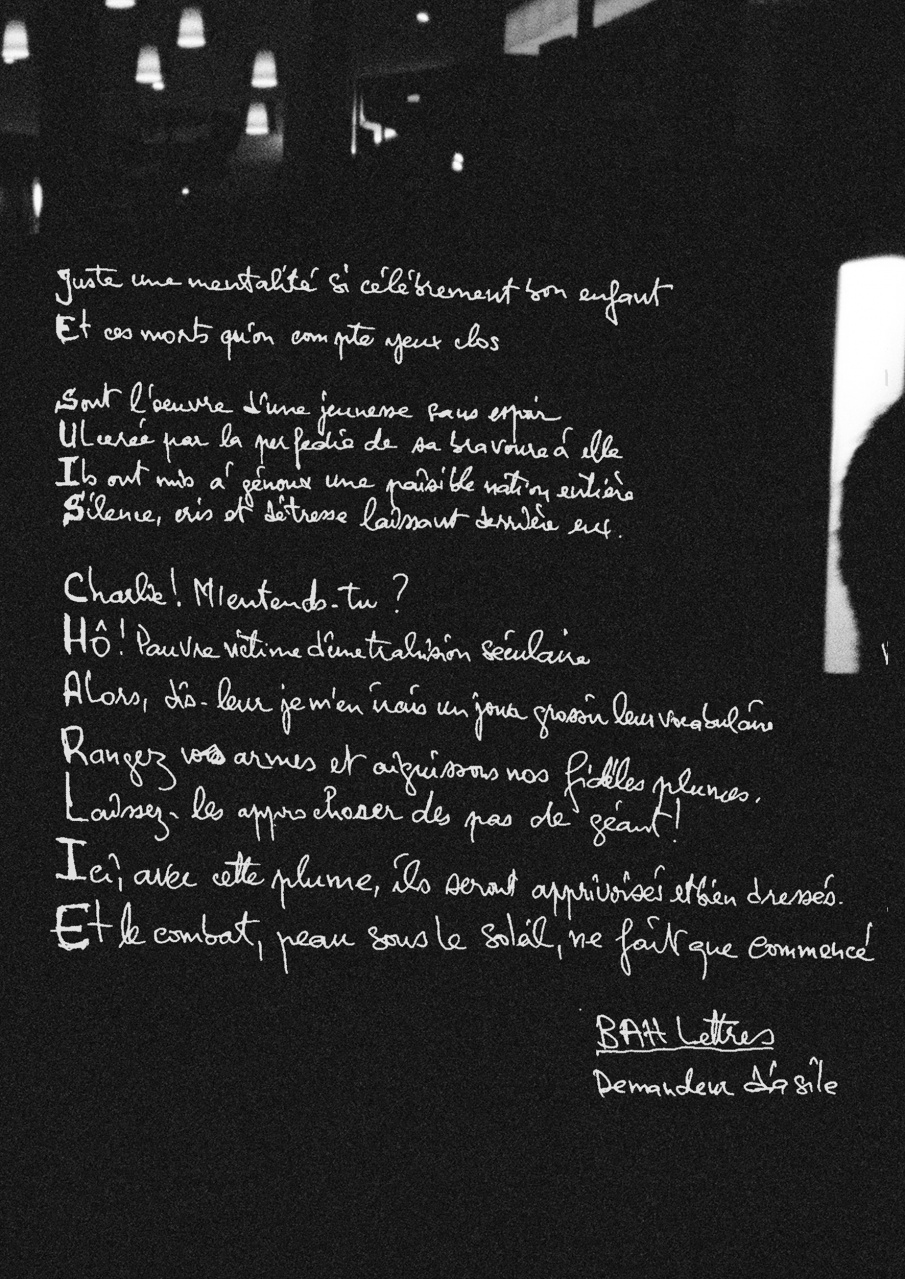 Juste une mentalité si célébrement bon enfant
Et ces morts qu'on compte yeux clos
Sont l'oeuvre d'une jeunesse sans espoir
ULcerée par la perfedie de sa bravoure à elle
Ils ont mis à génoux une paisible nation entière
Silence, cris et détresse laissant derrière eux.
Charlie! M'entends-tu ?
Hô! Pauvre victime d'une trahision séculaire
ALors, dis-leur je m'en irais un jour grossir leur vocabulaire
Rangez vos armes et aiguissons nos fidèles plumes.
Laissez-les approchoser des pas de géant!
Ici, avec cette plume, ils seront apprivoisés et bien dressés.
Et le combat, peau sous le soleil, ne fait que commencé
BAH Lettres
Demandeur d'asile